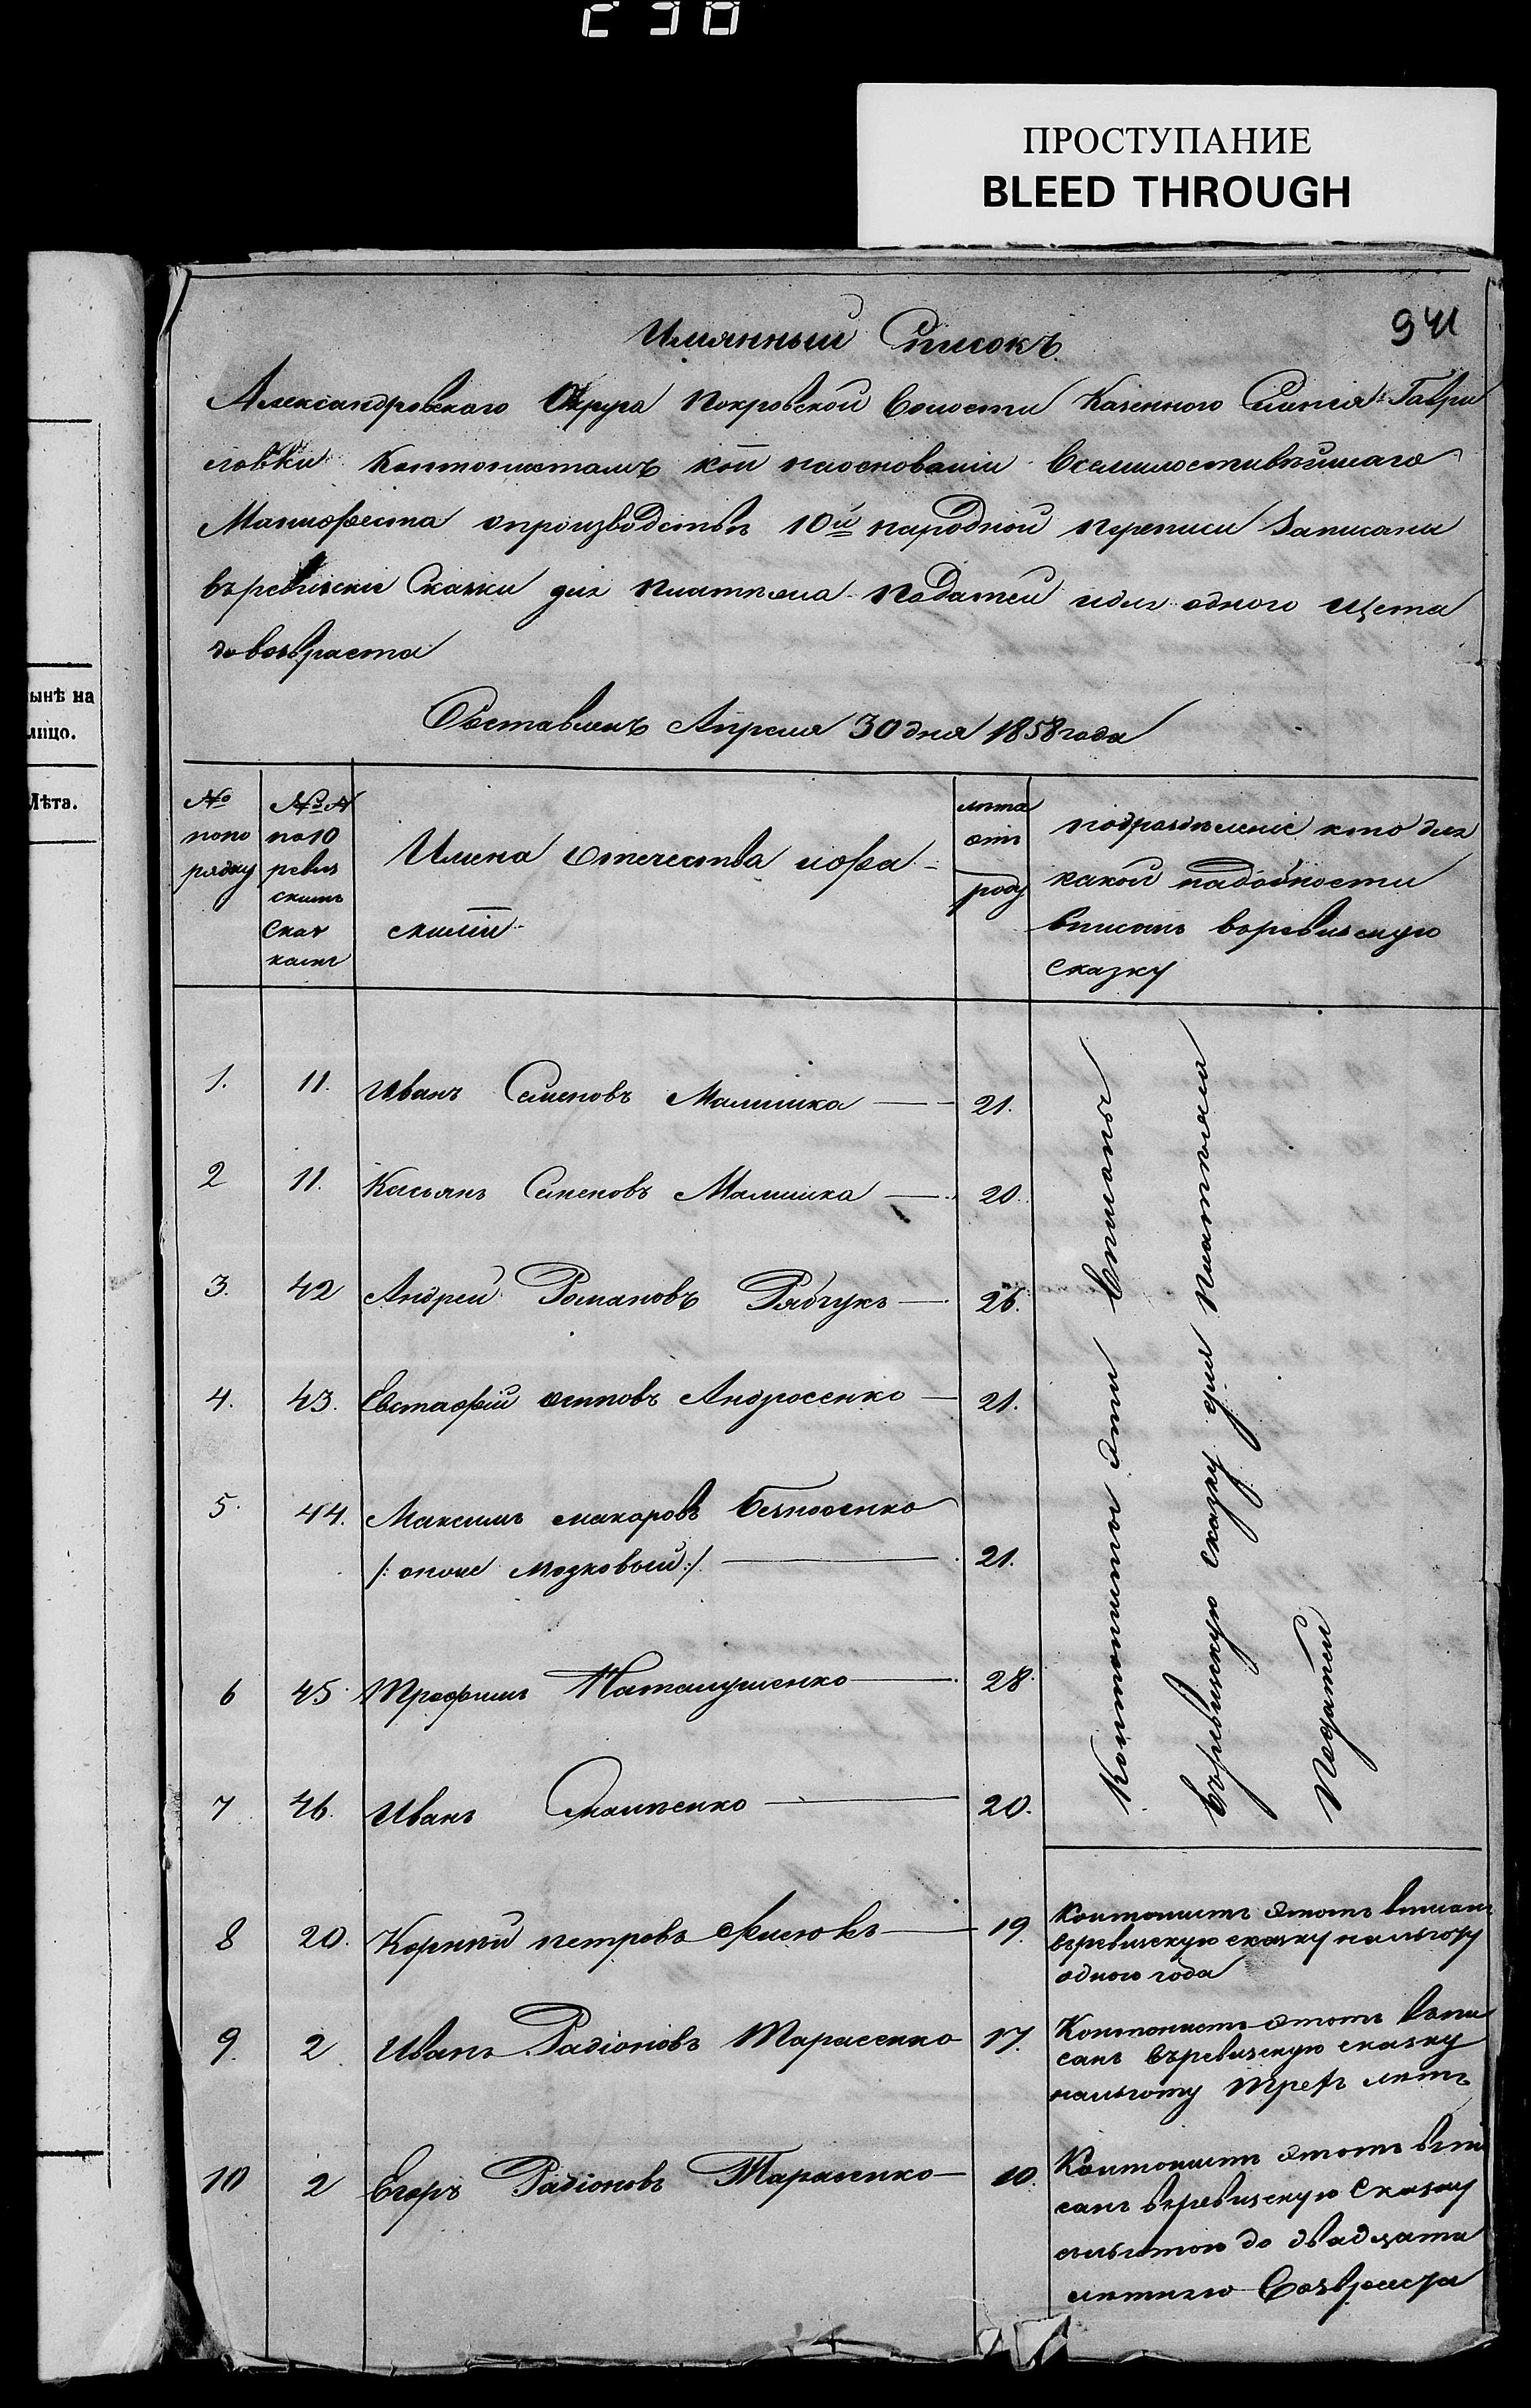 ПРОСТУПАНИЕ
BLEED THROUGH
941
Имянный Списокъ
Александровского Округа Покровской Волости Казенного Селенія Гаври
ловки Кантонистамъ кои наосновании Всемилостивѣйшаго
Манифеста опроизводствѣ 10й народной переписи Записани
въревизскіе Сказки для Платежа Податей идля одного щета
довозвраста
Составленъ Апреля 30 дня 1858 года
ынѣ на
лицо.
Лѣта.
№ попо рядку
№№ по10 ревиз скимъ Сказ камъ
Имена Отечества ифа милiи
лѣта отъ роду
подраздѣленіе кто для какой надобности вписанъ въревизскую сказку
1. 11. Иванъ Семеновъ Малишка 21.
2 11. Касьянъ Семеновъ Малишка 20.
3. 42 Андрей Романовъ Рябчукъ 26.
4. 43. Евстафій осиповъ Андросенко 21.
5. 44. Максимъ макаровъ Безносенко
/: онже Мозковый :/ 21.
6 45. Трофимъ Наталушенко 28.
7 46. Иванъ 20.
Кантонисты Эти Вписаны
въревизскую сказку для Платежа
Податей
8 20. Корній петровъ Фисювъ 19.
Кантонистъ Этотъ вписанъ
въревизскую сказку нальготу
одного года
9. 2 Иванъ Радіоновъ Тарасенко 17.
Кантонистъ Этотъ впи
санъ въревизскую сказку
нальготу Трехъ лѣтъ
10 2 Егоръ Радіоновъ Тарасенко 10.
Кантонистъ Этотъ впи
санъ въревизскую Сказку
сльготою до двадцати
лѣтнего Возвраста